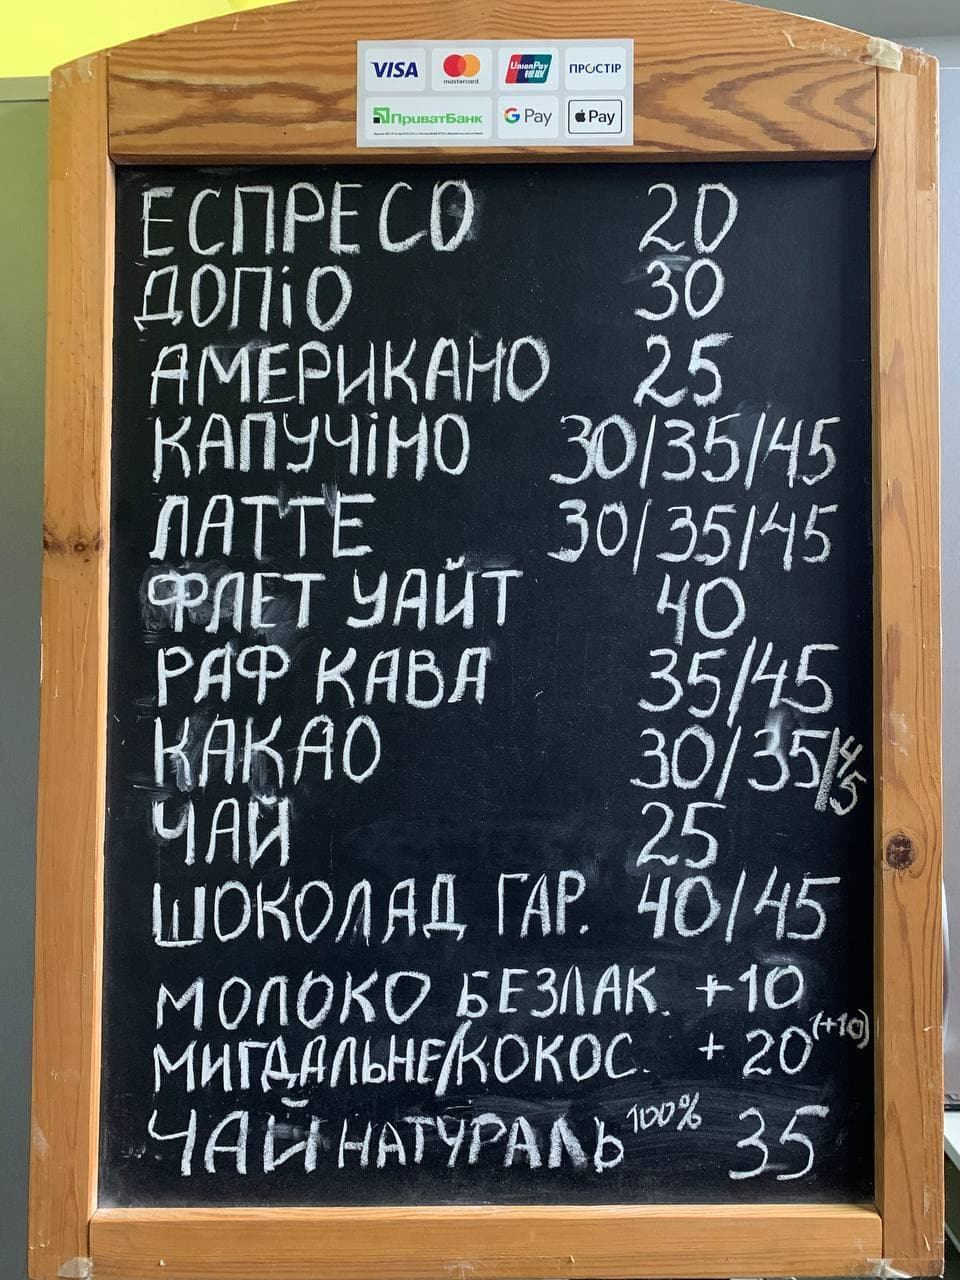 VISA mastercard UnionPay 银联 ПРОСТІР
ПриватБанк G Pay Pay
ЕСПРЕСО 20
ДОПіО 30
АМЕРИКАНО 25
КАПУЧіНО 30/35/45
ЛАТТЕ 30/35/45
ФЛЕТ УАЙТ 40
РАФ КАВА 35/45
КАКАО 30/35/45
ЧАЙ 25
ШОКОЛАД ГАР. 40/45
МОЛОКО БЕЗЛАК. +10
МИГДАЛЬНЕ/КОКОС. + 20 (+10)
ЧАЙ НАТУРАЛЬ 100% 35